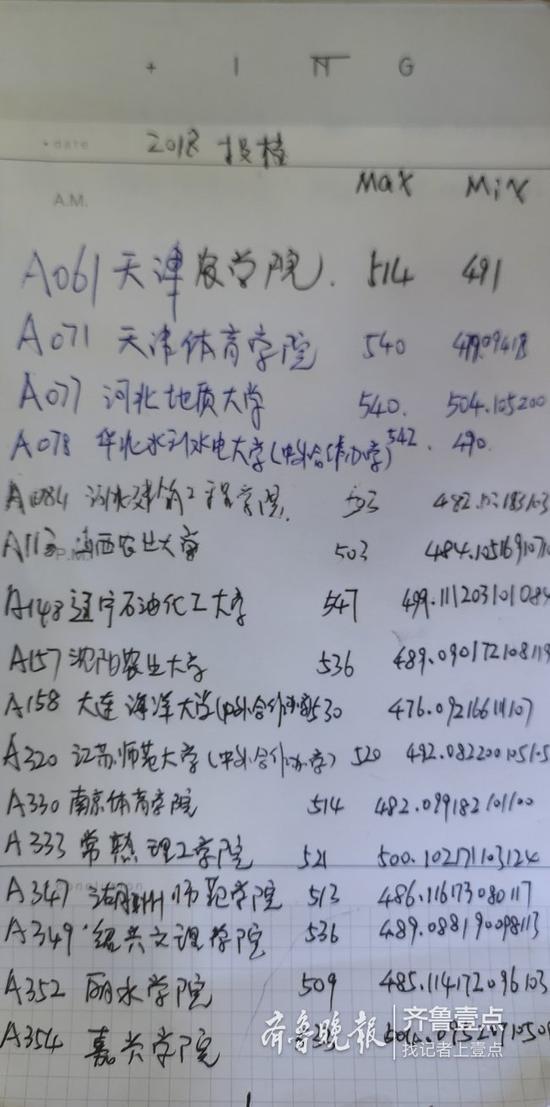 + I N G
date
2018 投档
Max Min
A.M.
A061 天津农学院. 514 491
A071 天津体育学院 540
A077 河北地质大学 540. 504.105200
A078 华北水利水电大学(中外合作办学) 542. 490.
A084 河北建筑工程学院.
503 484.105169107
A148 辽宁石油化工大学 547 499.111203101084
A157 沈阳农业大学 536 489.090172108119
A158 大连海洋大学(中外合作办学) 530
A320 江苏师范大学(中外合作办学) 520
A330 南京体育学院 514 482.099182101100
A333 常熟理工学院 521 500.102171103124
A347 湖州师范学院 513 486.116173080117
A349 绍兴文理学院 536 489.088190098113
A352 丽水学院 509 485.114172096103
A354 嘉兴学院
齐鲁晚报 齐鲁壹点
找记者上壹点